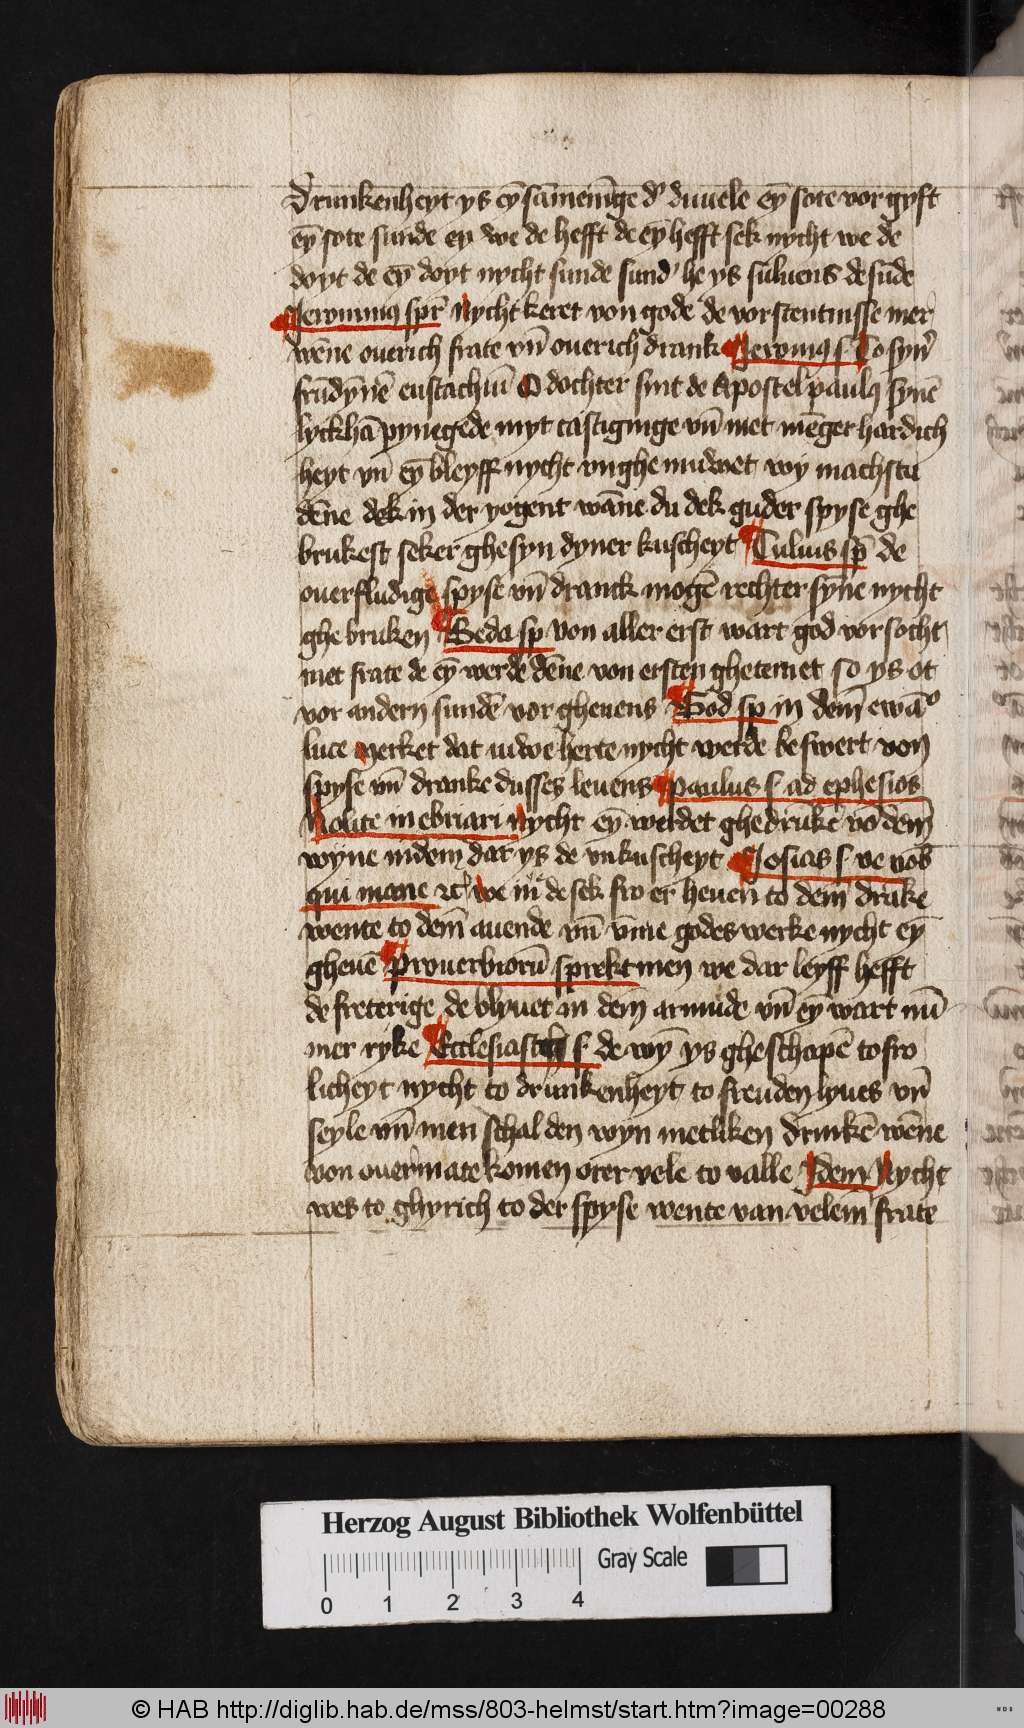 drunkenheyt ys eȳ sām̄enīge dʾ duuele eȳ sote vorgyft
eȳ sote sunde ey we de hefft de eȳ hefft sek nycht we de
doyt de eȳ doyt nycht sunde sundʾ he ys suluens de sūde
Jeronimꝰ spr̄ Nycht keret von gode de vorstentnisse mer
wēne ouerich frate vn̄ ouerich drank Jeronīꝰ s To synʾ
frūdȳnē eustachiū O dochter sint de Apostel paulꝰ synē
lyckhā pynegede myt castiginge vn̄ met mēger hardich
heyt vn̄ eȳ bleyff nycht vnghe muwet wy machstu
dēne dek in der yogent wāne du dek guder spyse ghe
brukest seker ghesyn dyner kuscheyt Tulius sp̄ de
ouerfludige spyse vn̄ dranck mogē rechter sȳne nycht
ghe bruken Beda sp von aller erst wart god vorsocht
met frate de eȳ werde dēne von ersten ghetemet so ys ot
vor andern sundē vorgheuens God sp in dem̄ ewāᵒ
luce merket dat iuwe herte nycht werde beswert von
spyse vn̄ dranke dusses leuens Paulus s ad ephesios
Nolite inebriari Nycht eȳ werdet ghedrūkē vō dem̄
wyne indem dar ys de vnkuscheyt Josias s ve vob
qui mane ꝛcͭ we in de sek fro er heuen to dem̄ drāke
wente to dem̄ auende vn̄ v̄me godes werke nycht eȳ
gheuē Prouerbiorū sprekt men we dar leyff hefft
de freterige de blyuet in dem̄ armude vn̄ eȳ wart nū
mer ryke Ecclesiast s de wȳ ys gheschapē to fro
licheyt nycht to drunkenheyt to freuden lyues vn̄
seyle vn̄ men schal den wyn metliken drinkē wēne
von ouermate komen orer vele to valle Idem Nycht
wes to ghyrich to der spyse wente van velem̄ frate
Herzog August Bibliothek Wolfenbüttel
Gray Scale
0 1 2 3 4
© HAB http://diglib.hab.de/mss/803-helmst/start.htm?image=00288